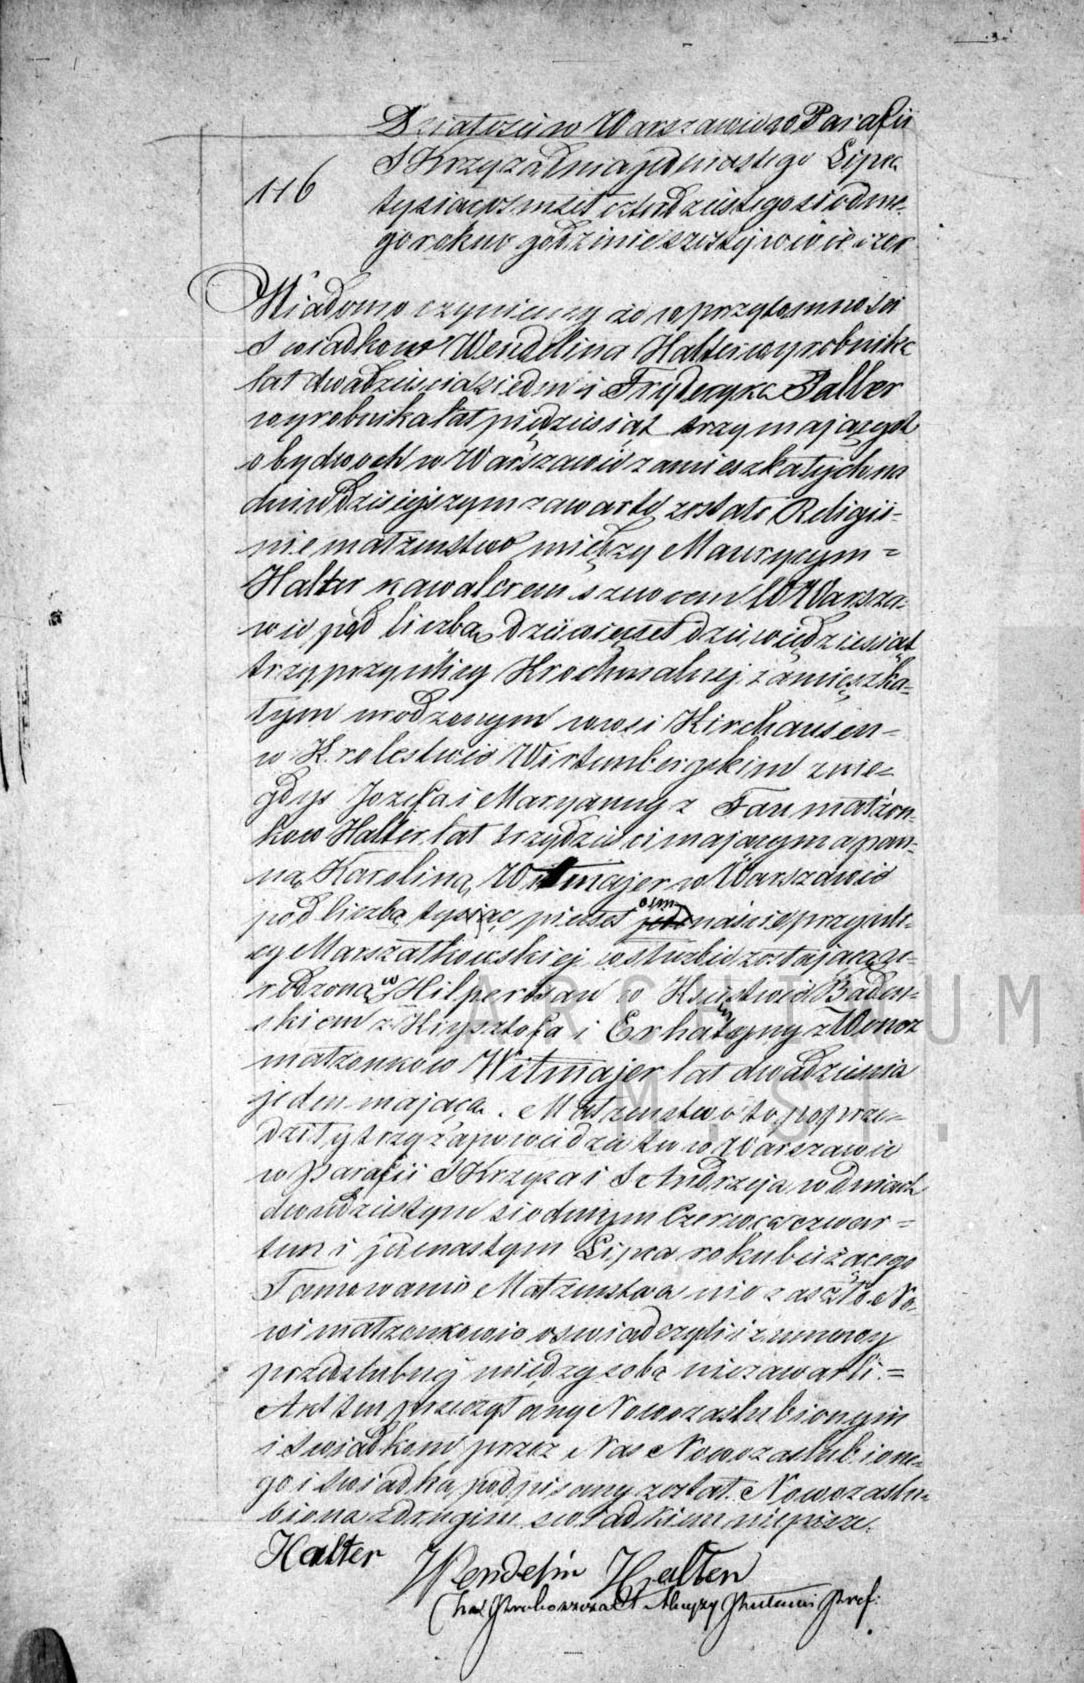 Działo się w Warszawie w Parafii
116
S Krzyża dnia jedenastego Lipca
tysiąc osmset czterdziestego siodme-
go roku o godzinie szostej w wieczor
Wiadomo czyniemy że w przytomności
swiadkow Wendelina Halter wyrobnika
lat dwadzieścia siedm i Fryderyka Balber
wyrobnika lat pięдziesiąt trzy mających
obydwoch w Warszawie zamieszkałych na
dniu dzisiejszym zawarte zostało Religij-
nie małzenstwo między Maurycym =
Halter kawalerem szewcem w Warsza-
wie pod liczbą dziewięćset dziewięдziesiąt
trzy przy ulicy Krochmalnej zamieszka-
łym urodzonym we wsi Kirchausen -
w Krolestwie Wirtembergskim z nie-
gdys Jozefa i Maryanny z Fau małżon-
kow Halter lat trzydzieści mającym a pan-
ną Karoliną Witmajer w Warszawie
pod liczbą tysiąc pięćset osmnaście przy uli-
cy Marszałkowskiej w służbie zostającą u-
rodzoną w Hilpertsau w Księstwie Badeń-
skiem z Krysztofa i Katarzyny z Wonoz
małzonkow Witmajer lat dwadzieścia
jeden mającą. Małzenstwo to poprze-
dziły trzy zapowiedzie tu w Warszawie
w parafii S Krzyża i S Andrzeja w dniach
dwudziestym siodmym Czerwca czwar =
tym i jedenastym Lipca roku bieżącego
Tamowanie Małzenstwa nie zaszło No-
wi małzonkowie oswiadczyli iż umowy
przedslubnej między sobą niezawarli. =
Akt ten przeczytany Nowozaslubionym
i swiadkom przez Nas Nowozaslubione-
go i swiadka podpisany został. Nowozaslu-
biona z drugim swiadkiem niepisze.
Halter Wendelin Halter